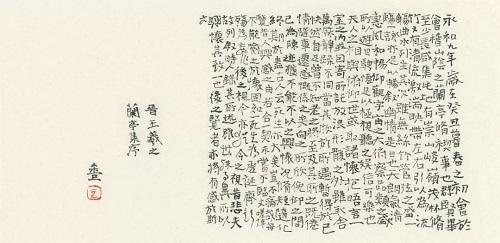 永和九年歲在癸丑暮春之初會於
會稽山陰之蘭亭脩禊事也群賢畢
至少長咸集此地有崇山峻領茂林脩
竹又有清流激湍映帶左右引以為流
觴曲水列坐其次雖無絲竹管弦之盛一
觴一詠亦足以暢敘幽情是日也天朗氣清
惠風和暢仰觀宇宙之大俯察品類之盛
所以遊目騁懷足以極視聽之娛信可樂也
夫人之相與俯仰一世或取諸懷抱悟言一
室之內或因寄所託放浪形骸之外雖取舍
萬殊靜躁不同當其欣於所遇暫得於己
快然自足不知老之將至及其所之既惓
情隨事遷感慨係之矣向之所欣俛仰之間
已為陳迹猶不能不以之興懷況脩短隨化
終期於盡古人云死生亦大矣豈不痛哉每
攬昔人興感之由若合一契未嘗不臨文嗟悼
不能喻之於懷固知一死生為虛誕齊彭
殤為妄作後之視今亦由今之視昔悲夫
故列敘時人錄其所述雖世殊事異所以
興懷其致一也後之覽者亦將有感於斯
文
晉王羲之
蘭亭集序